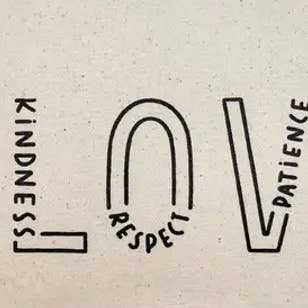 KiNDNESS
RESPECT
PATiENCE